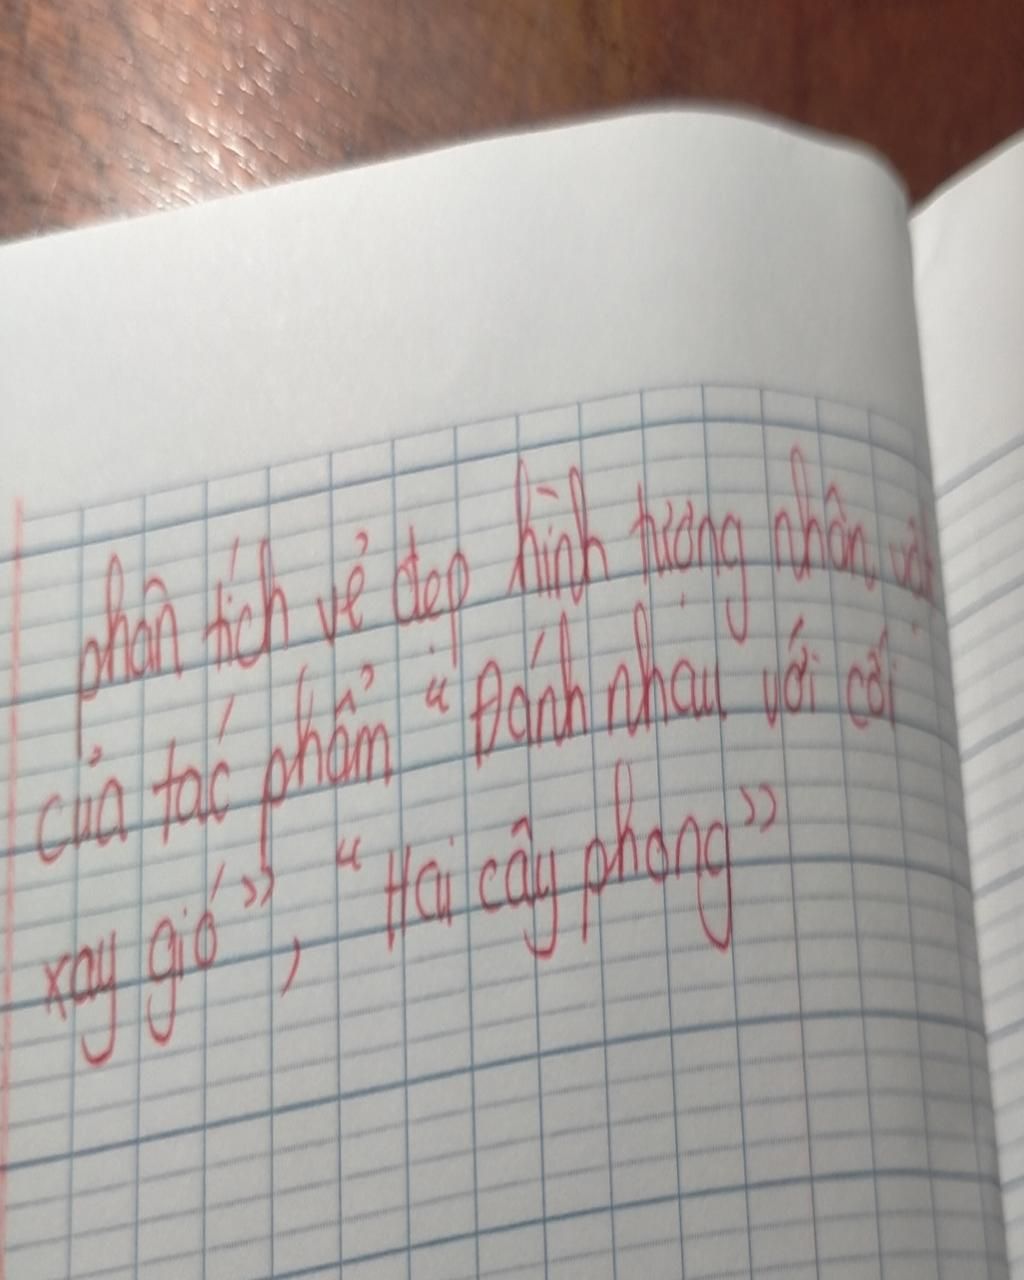 phân tích vẻ đẹp hình tượng nhân vật
của tác phẩm "Đánh nhau với cối
xay gió", "Hai cây phong"